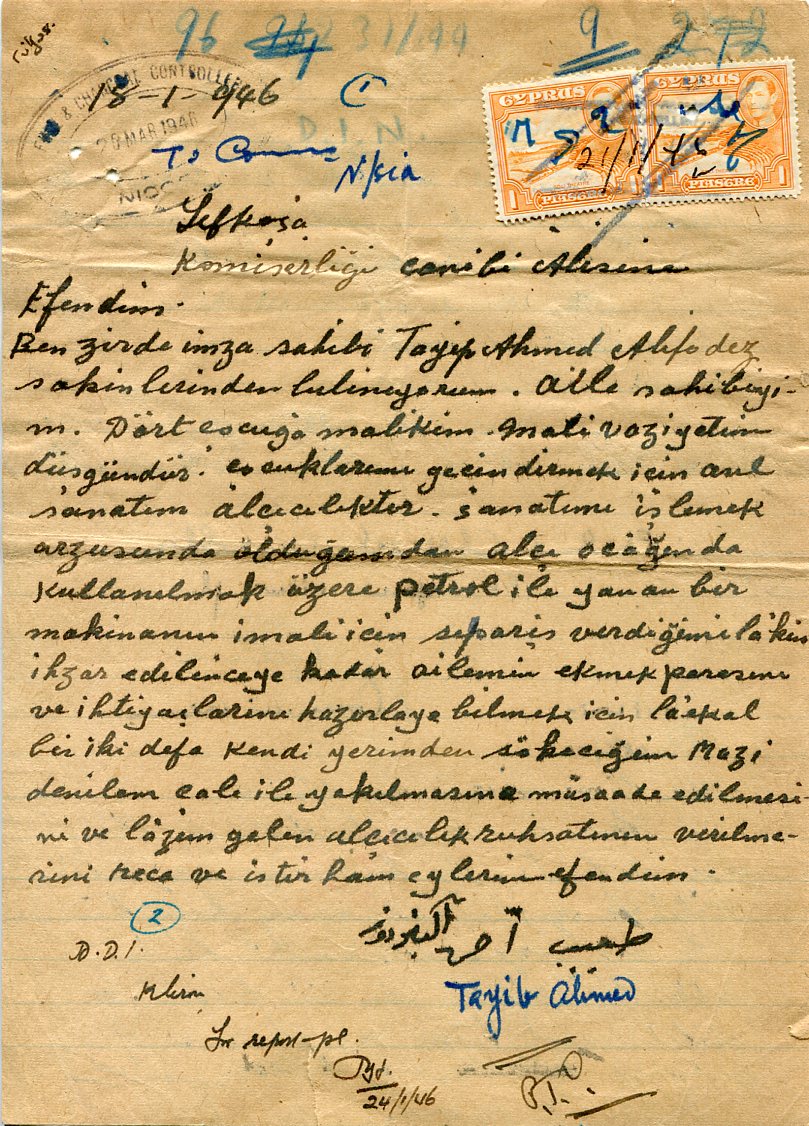 96 371/44 9 272
18-1-946
FUEL & CHARCOAL CONTROLLER
20 MAR 1946
To Comm
N/sia
D.I.N.
CYPRUS CYPRUS
21/1/46
1 PIASTRE 1 PIASTRE 1
Lefkoşa
Komiserliği canibi Alisine
Efendim.
Ben zirde imza sahibi Tayip Ahmed Alifodez
sakinlerinden bulunuyorum. Aile sahibiyi-
m. Dört çocuğa malikim. Mali vaziyetim
düşgündür. Çocuklarımı geçindirmek için asıl
sanatım alçıcılıktır. Sanatımı işlemek
arzusunda olduğumdan alçı ocağında
kullanılmak üzere petrol ile yanan bir
makinanın imali için sipariş verdiğimi lâkin
ihzar edilinceye kadar ailemin ekmek parasını
ve ihtiyaçlarını hazırlaya bilmek için lâekal
bir iki defa kendi yerimden sökeceğim Mazi
denilem çalı ile yakılmasına müsaade edilmesi
ni ve lâzım gelen alçıcılık ruhsatının verilme-
sini reca ve istirhâm eylerim efendim.
2
D.D.I.
Klirou
طيب احمد
Tayib Ahmed
for report pl.
24/1/46